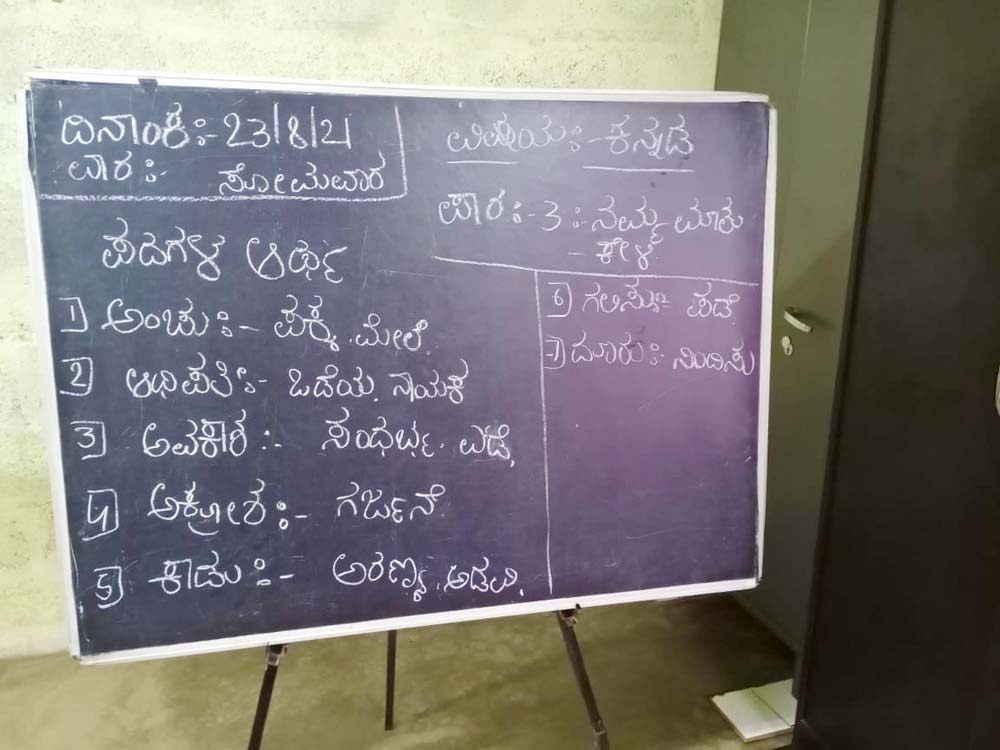 ದಿನಾಂಕ:- 23/8/21
ವಾರ:- ಸೋಮವಾರ
ವಿಷಯ:- ಕನ್ನಡ
ಪಾಠ:- 3 :- ನಮ್ಮ ಮಾತು
- ಕೇಳಿ
ಪದಗಳ ಅರ್ಥ
1] ಅಂಚು:- ಪಕ್ಕ, ಮೇಲೆ.
2] ಅಧಿಪತಿ:- ಒಡೆಯ, ನಾಯಕ
3] ಅವಕಾಶ:- ಸಂಧರ್ಭ, ಎಡೆ,
4] ಆಕ್ರೋಶ:- ಗರ್ಜನೆ
5] ಕಾಡು:- ಅರಣ್ಯ, ಅಡವಿ.
6] ಗಲಿಸು:- ಪಡೆ.
7] ದೂರು:- ನಿಂದಿಸು